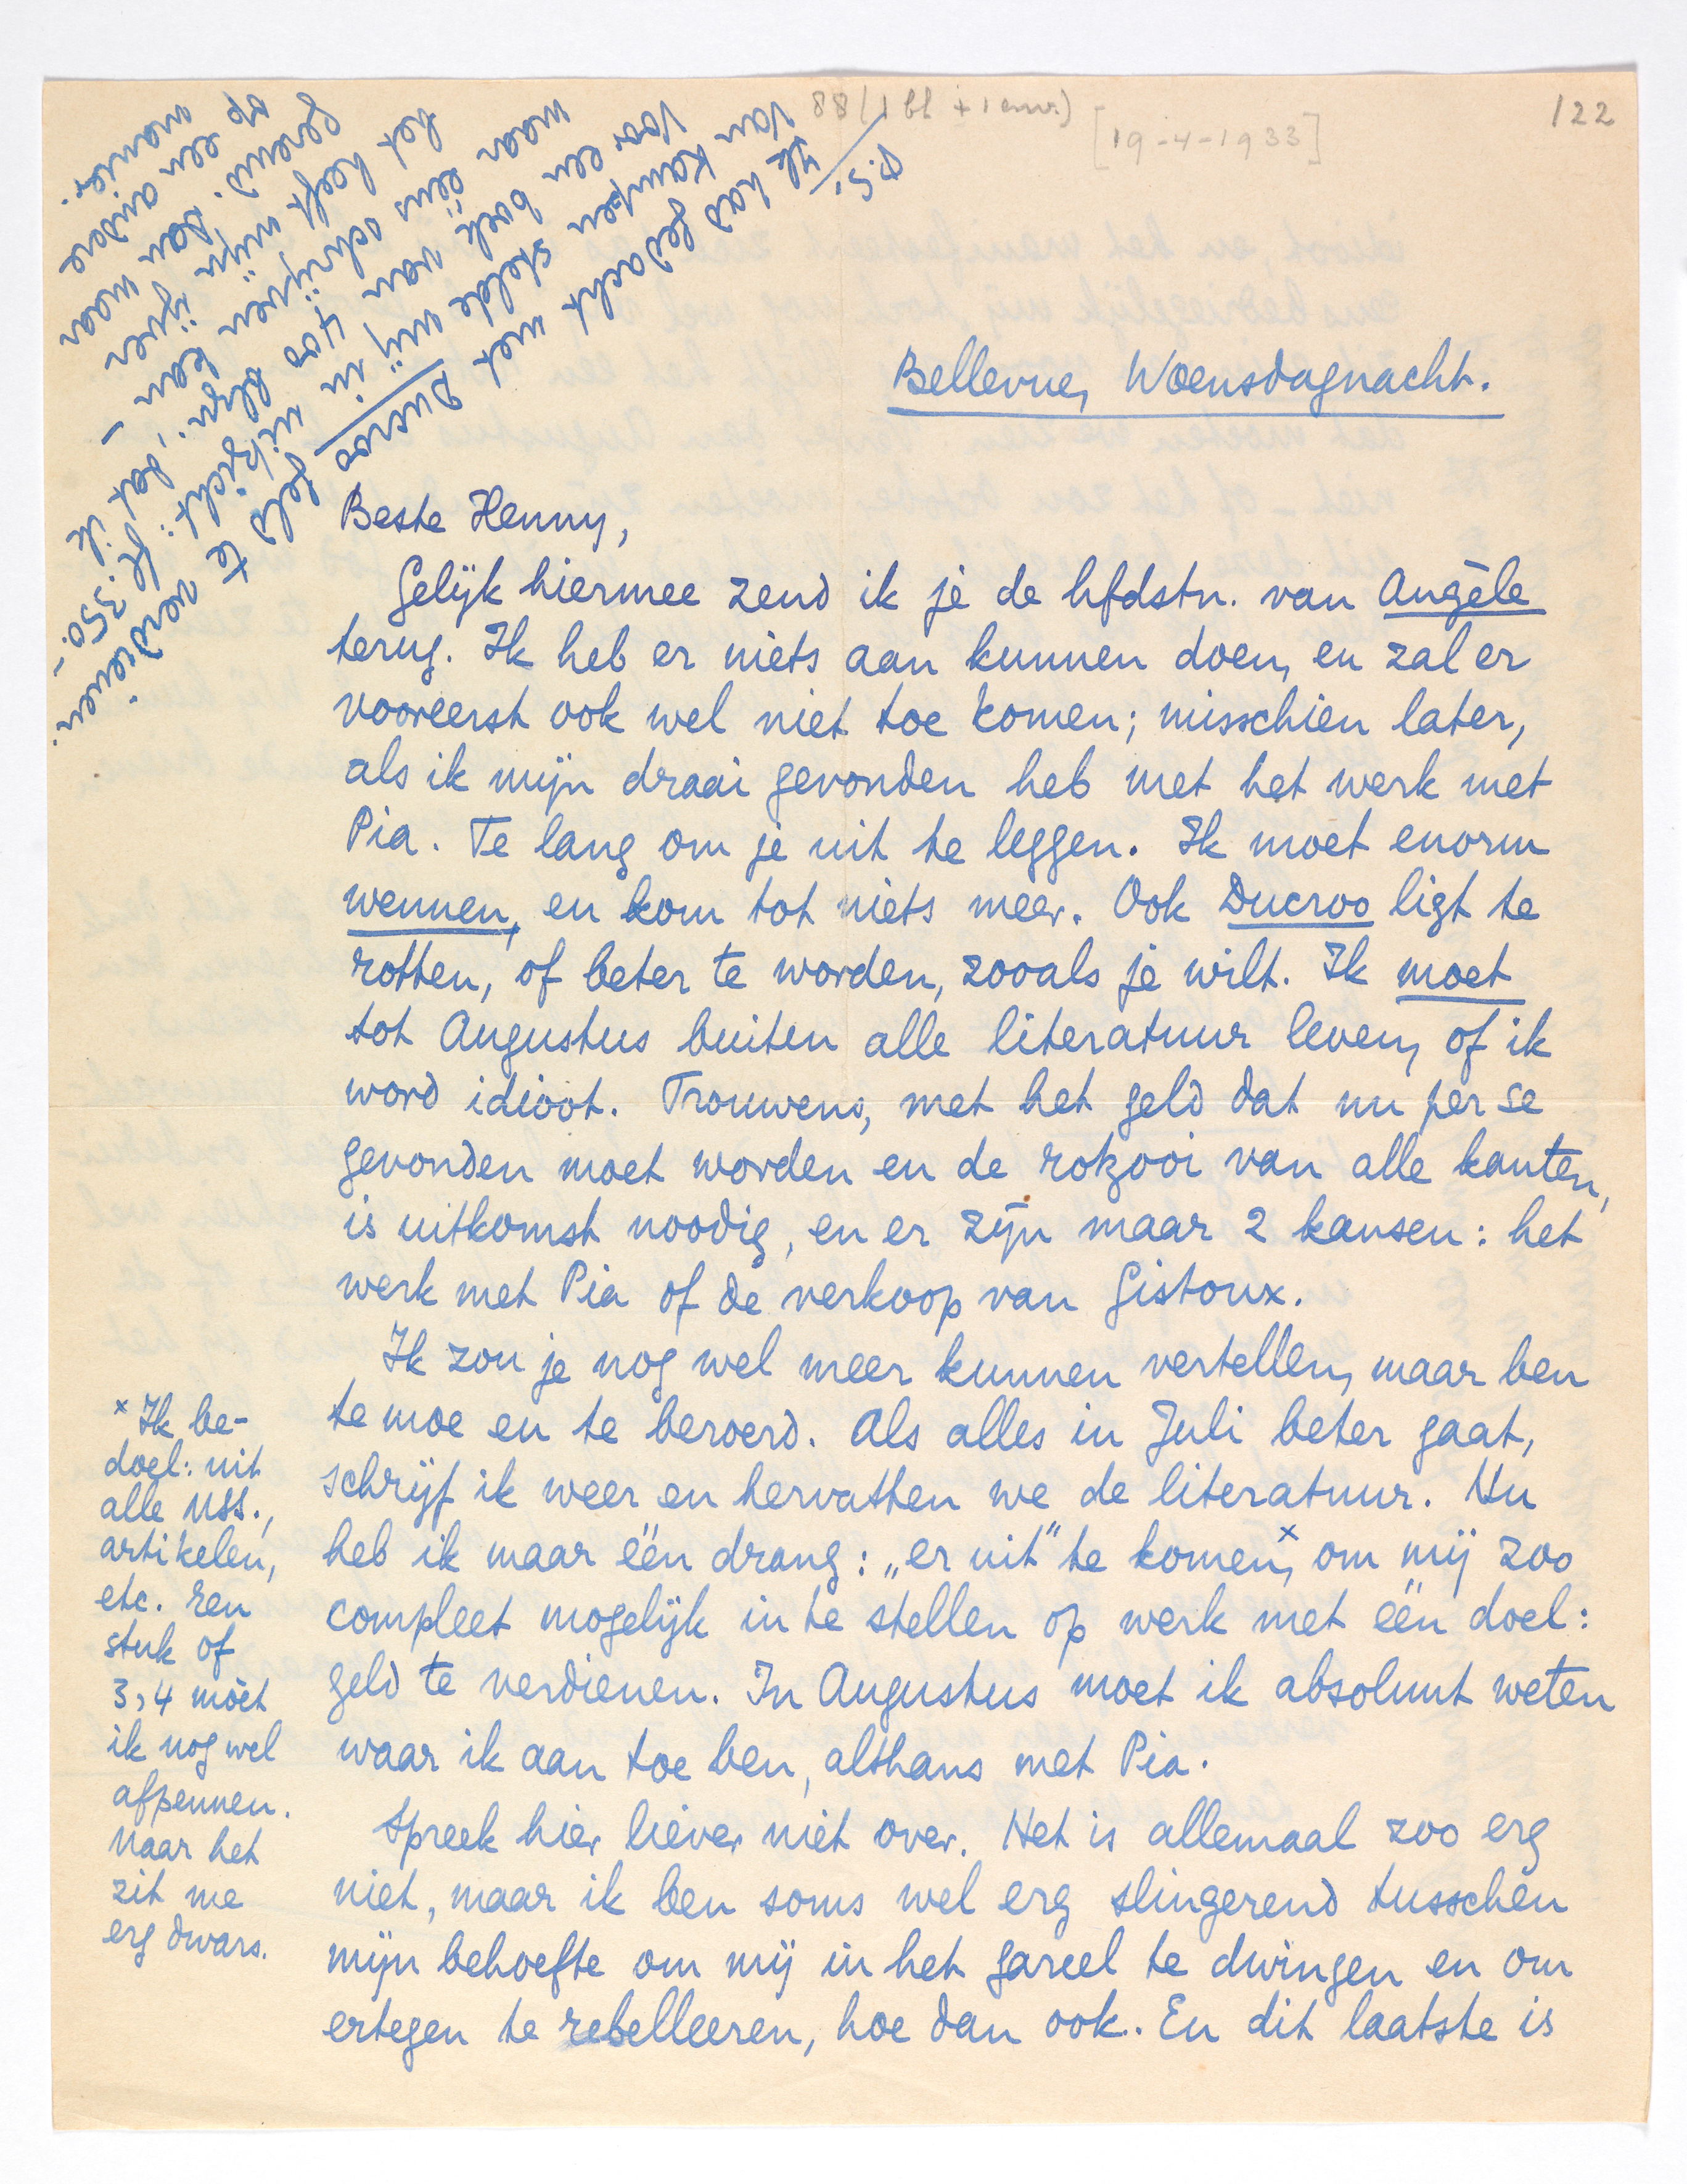 88 (1 bl + 1 env.)
[19-4-1933]
122
P.S.
Ik had gedacht met Ducroo geld te verdienen.
Van Kampen stelde mij in uitzicht: fl 350.-
voor een boek van 400 blzn., dat ik
maar ééns schrijven kan –
het heeft mijn ijver
geremd. Dan maar
op een andere
manier.
Bellevue, Woensdagnacht.
Beste Henny,
Gelijk hiermee zend ik je de hfdstn. van Angèle
terug. Ik heb er niets aan kunnen doen, en zal er
vooreerst ook wel niet toe komen; misschien later,
als ik mijn draai gevonden heb met het werk met
Pia. Te lang om je uit te leggen. Ik moet enorm
wennen, en kom tot niets meer. Ook Ducroo ligt te
rotten, of beter te worden, zooals je wilt. Ik moet
tot Augustus buiten alle literatuur leven, of ik
word idioot. Trouwens, met het geld dat nu per se
gevonden moet worden en de rotzooi van alle kanten,
is uitkomst noodig, en er zijn maar 2 kansen: het
werk met Pia of de verkoop van Gistoux.
Ik zou je nog wel meer kunnen vertellen, maar ben
te moe en te beroerd. Als alles in Juli beter gaat,
schrijf ik weer en hervatten we de literatuur. Nu
heb ik maar één drang: „er uit" te komen,x om mij zoo
compleet mogelijk in te stellen op werk met één doel:
geld te verdienen. In Augustus moet ik absoluut weten
waar ik aan toe ben, althans met Pia.
Spreek hier liever niet over. Het is allemaal zoo erg
niet, maar ik ben soms wel erg slingerend tusschen
mijn behoefte om mij in het gareel te dwingen en om
ertegen te rebelleeren, hoe dan ook. En dit laatste is
x Ik be-
doel: uit
alle MSS.,
artikelen,
etc. Een
stuk of
3, 4 moet
ik nog wel
afpennen.
Maar het
zit me
erg dwars.